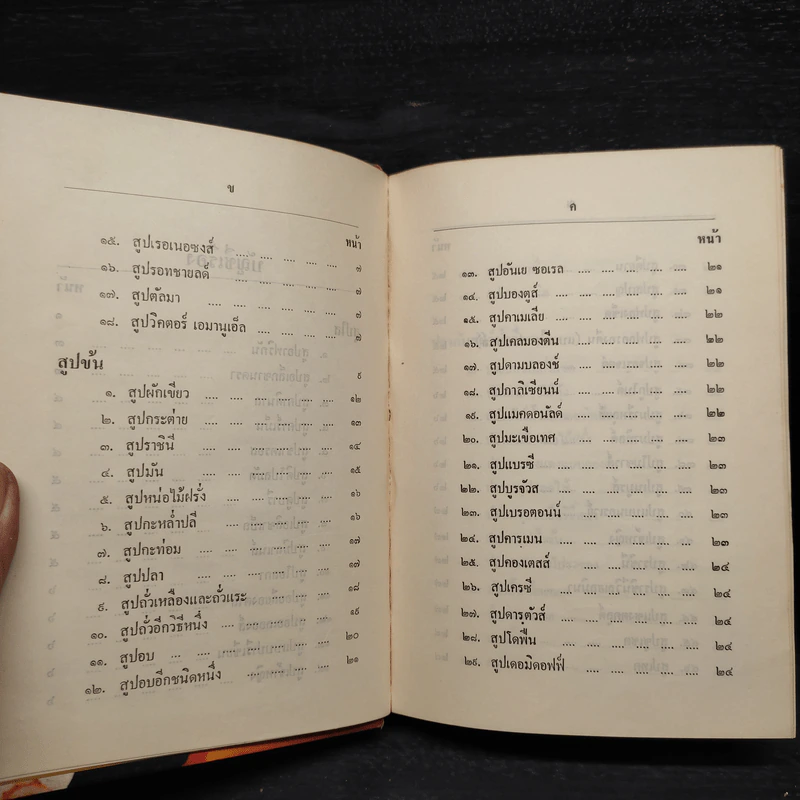 ข
หน้า
๑๕. สูปเรอเนอซงส์ .... .... .... .... ๗
๑๖. สูปรอทชายลด์ .... .... .... .... ๗
๑๗. สูปตัลมา .... .... .... .... .... ๗
๑๘. สูปวิคตอร์ เอมานูเอ็ล .... .... .... ๗
สูปข้น ๙
๑. สูปผักเขียว .... .... .... .... ๑๒
๒. สูปกระต่าย .... .... .... .... ๑๓
๓. สูปราชินี .... .... .... .... ๑๔
๔. สูปมัน .... .... .... .... .... ๑๕
๕. สูปหน่อไม้ฝรั่ง .... .... .... .... ๑๖
๖. สูปกะหล่ำปลี .... .... .... .... ๑๖
๗. สูปกะท่อม .... .... .... .... .... ๑๗
๘. สูปปลา .... .... .... .... .... ๑๗
๙. สูปถั่วเหลืองและถั่วแระ .... .... .... ๑๘
๑๐. สูปถั่วอีกวิธีหนึ่ง .... .... .... .... ๑๙
๑๑. สูปอบ .... .... .... .... .... ๒๐
๑๒. สูปอบอีกชนิดหนึ่ง .... .... .... .... ๒๑
ค
หน้า
๑๓. สูปอันเย ซอเรล .... .... .... .... ๒๑
๑๔. สูปบองตูส์ .... .... .... .... .... ๒๑
๑๕. สูปคาเมเลีย .... .... .... .... .... ๒๒
๑๖. สูปเคลมองตีน .... .... .... .... ๒๒
๑๗. สูปดามบลองช์ .... .... .... .... ๒๒
๑๘. สูปกาลิเซียนน์ .... .... .... .... ๒๒
๑๙. สูปแมคดอนัลด์ .... .... .... .... ๒๒
๒๐. สูปมะเขือเทศ .... .... .... .... ๒๓
๒๑. สูปแบรซี่ .... .... .... .... .... ๒๓
๒๒. สูปบูรจัวส .... .... .... .... .... ๒๓
๒๓. สูปเบรอตอนน์ .... .... .... .... ๒๓
๒๔. สูปคารเมน .... .... .... .... .... ๒๓
๒๕. สูปคองเตสส์ .... .... .... .... ๒๔
๒๖. สูปเครซี่ .... .... .... .... .... ๒๔
๒๗. สูปดารตัวส์ .... .... .... .... .... ๒๔
๒๘. สูปโดฟีน .... .... .... .... .... ๒๔
๒๙. สูปเดอมิดอฟฟ์ .... .... .... .... ๒๔